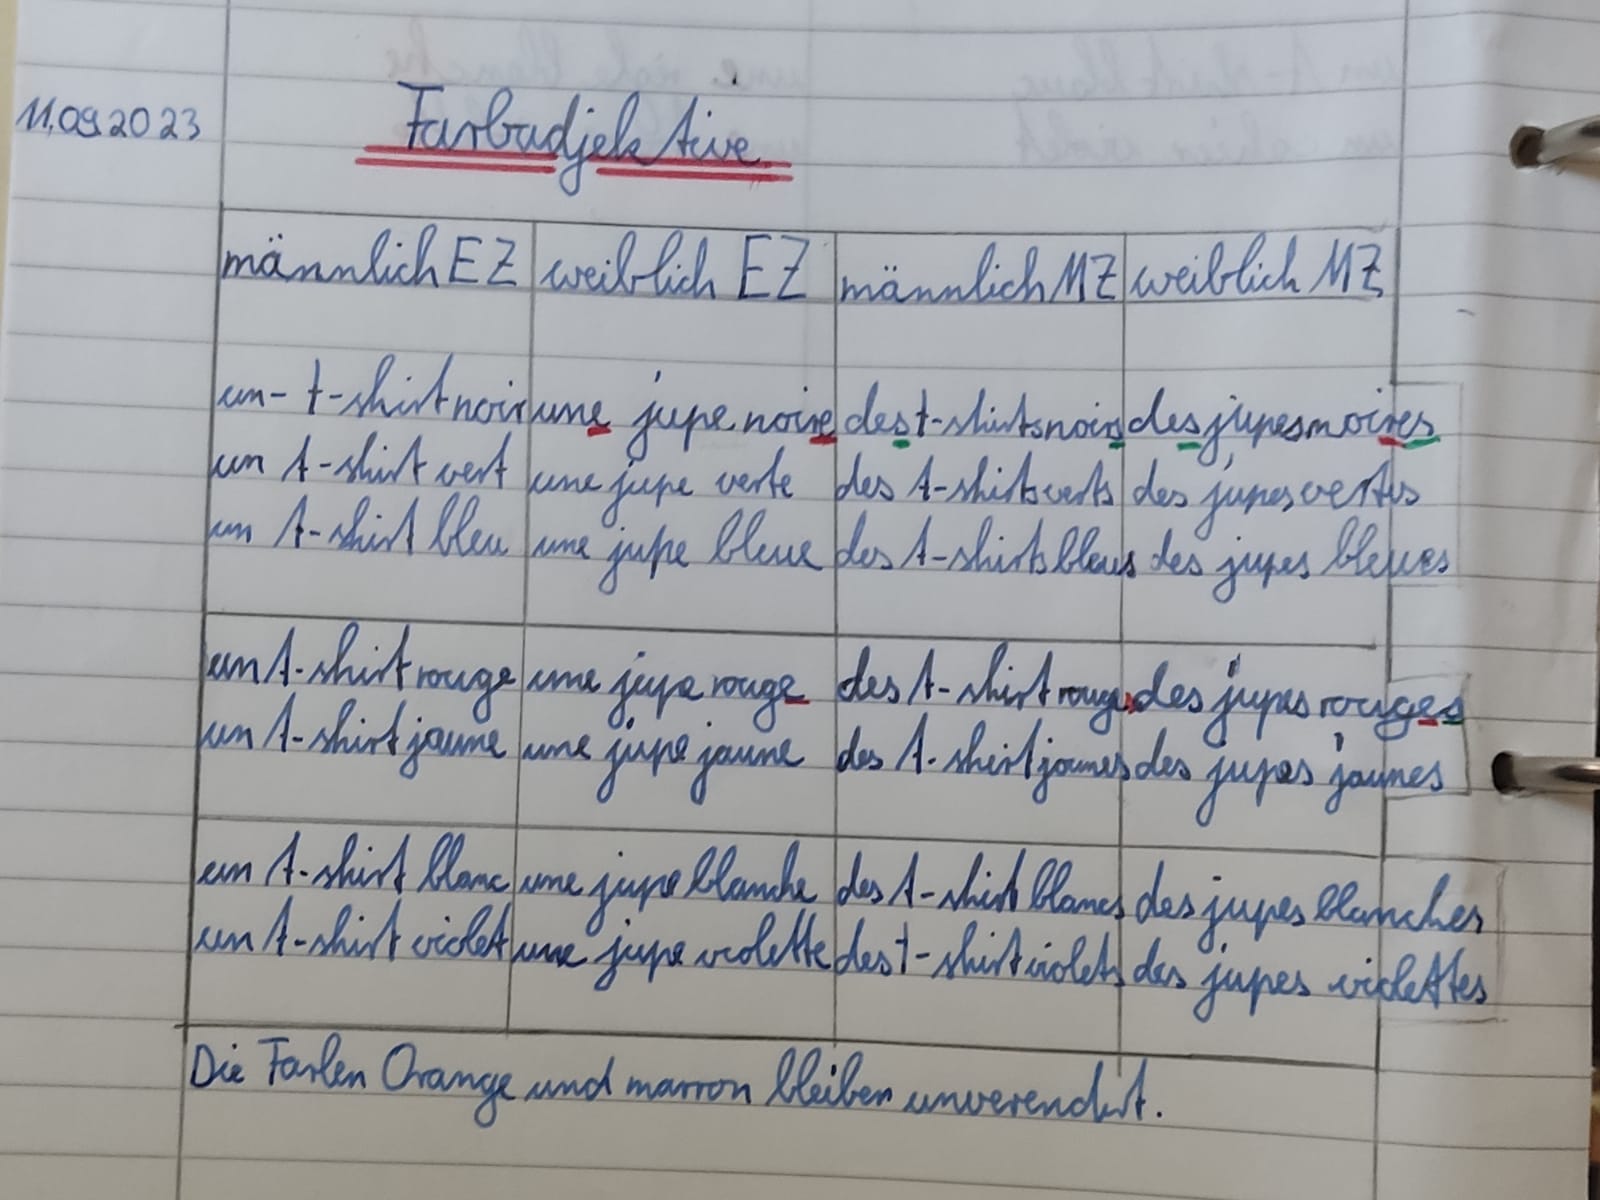 11.09.2023 Farbadjektive
männlich EZ weiblich EZ männlich MZ weiblich MZ
un- t-shirt noir une jupe noire des t-shirts noirs des jupes noires
un t-shirt vert une jupe verte des t-shirts verts des jupes vertes
un t-shirt bleu une jupe bleue des t-shirts bleus des jupes bleues
un t-shirt rouge une jupe rouge des t-shirt rouges des jupes rouges
un t-shirt jaune une jupe jaune des t-shirt jaunes des jupes jaunes
un t-shirt blanc une jupe blanche des t-shirt blancs des jupes blanches
un t-shirt violet une jupe violette des t-shirt violets des jupes violettes
Die Farben Orange und marron bleiben unverendert.